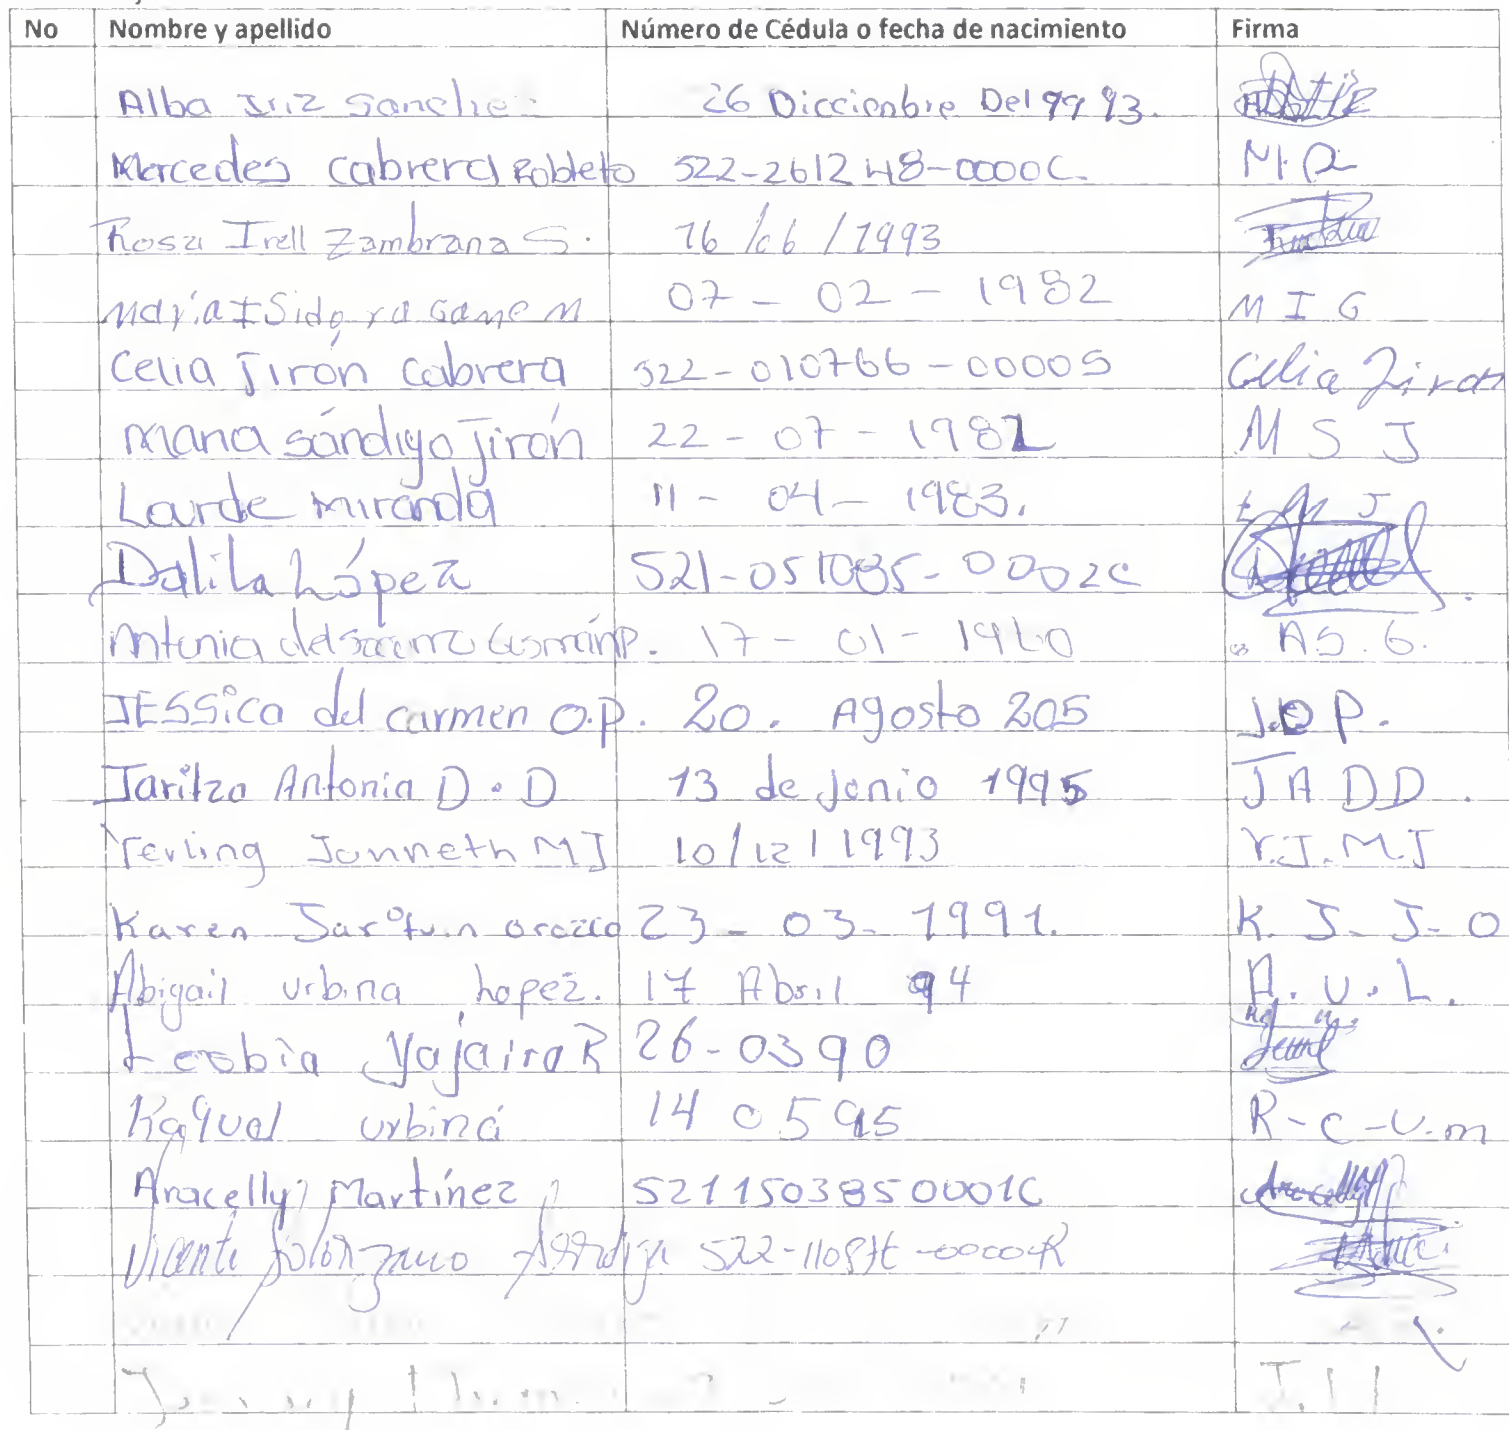 No Nombre y apellido Número de Cédula o fecha de nacimiento Firma
Alba Iriz Sanche 26 Diccienbre Del 9993.
Mercedes Cabrera Robleto 522-261248-0000C. M.R
Rosa Irell Zambrana S. 16/06/1993
María ISidora Game M 07 - 02 - 1982 M I G
Celia Jirón Cabrera 522-010766-0000S Celia Jiron
Maria Sándigo Jirón 22 - 07 - 1982 M S J
Lourde miranda 11 - 04 - 1983.
Dalila López 521-051085-0002C
Antonia del Socorro Gusmán P. 17 - 01 - 1960 A S. G.
JESSica del carmen O.P. 20. Agosto 205 J.O P.
Jaritza Antonia D. D 13 de junio 1995 J A D D.
Yerling Janneth M J 10/12/1993 Y.J.M.J
Karen Jarquin orozco 23 - 03 - 1991. K. J - J - O
Abigail urbina Lopez. 17 Abril 94 A. U. L.
Lesbia Yajaira R 26-0390
Raquel urbina 14 05 95 R-C-U.m
Aracelly Martínez 5211503850001C Aracelly
Vicente Solorzano